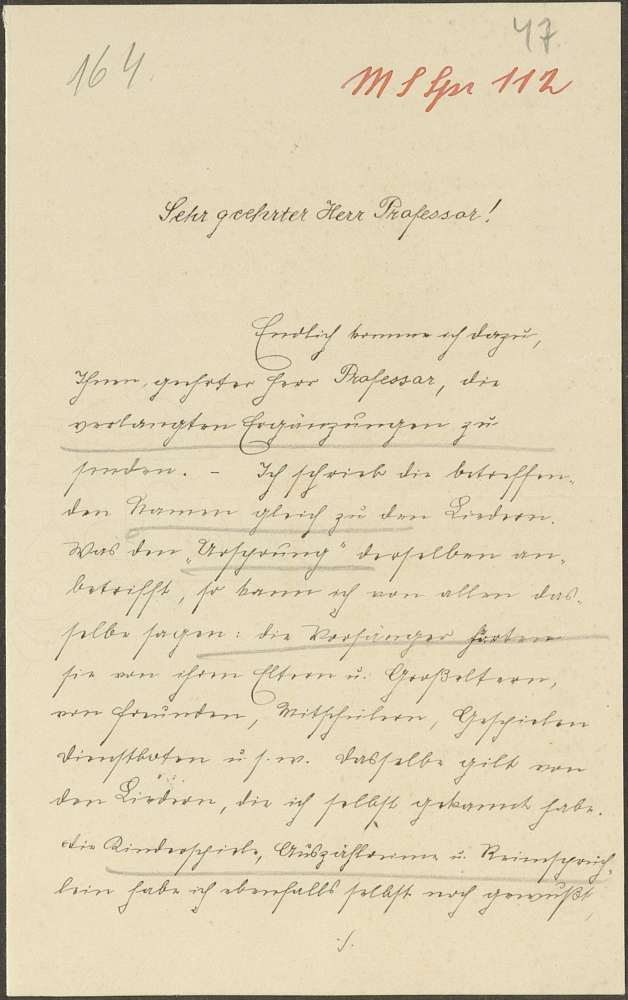 47.
164.
MS Gr 112
Sehr geehrter Herr Professor!
Endlich komme ich dazu,
Ihnen, geehrter Herr Professor, die
verlangten Ergänzungen zu
senden. – Ich schrieb die betreffen-
den Namen gleich zu den Liedern.
Was den „Ursprung“ derselben an-
betrifft, so kann ich von allen das-
selbe sagen: die Vorsänger hörten
sie von ihren Eltern u. Großeltern,
von Freunden, Mitschülern, Gespielen
Dienstboten u. s. w. Dasselbe gilt von
den Liedern, die ich selbst gekannt habe.
Die Kinderspiele, Auszählreime u. Reimsprüch-
lein habe ich ebenfalls selbst noch gewußt,
./.